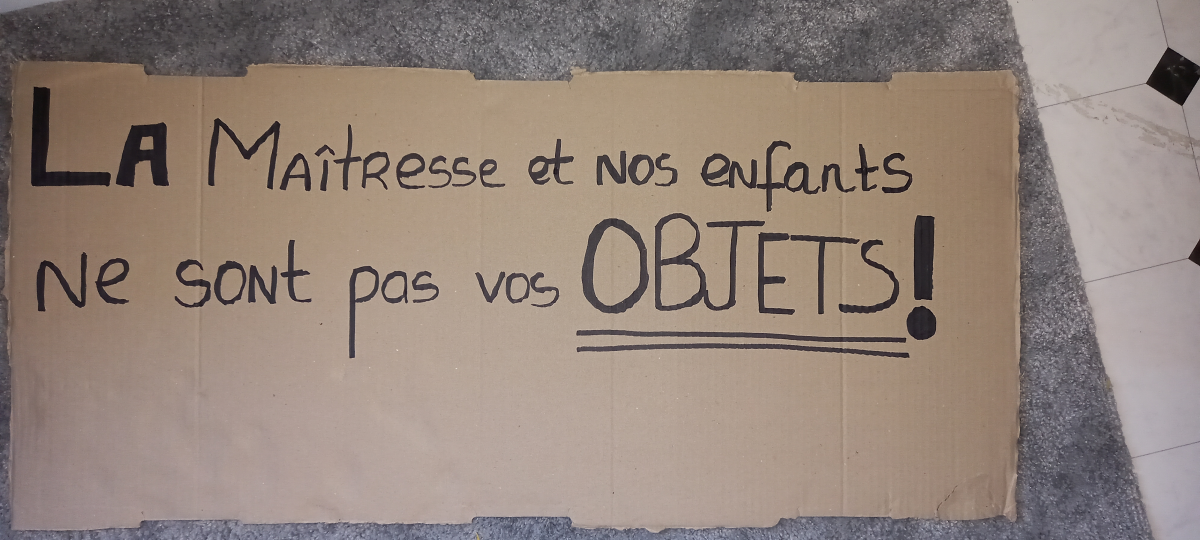 LA Maîtresse et nos enfants
ne sont pas vos OBJETS!